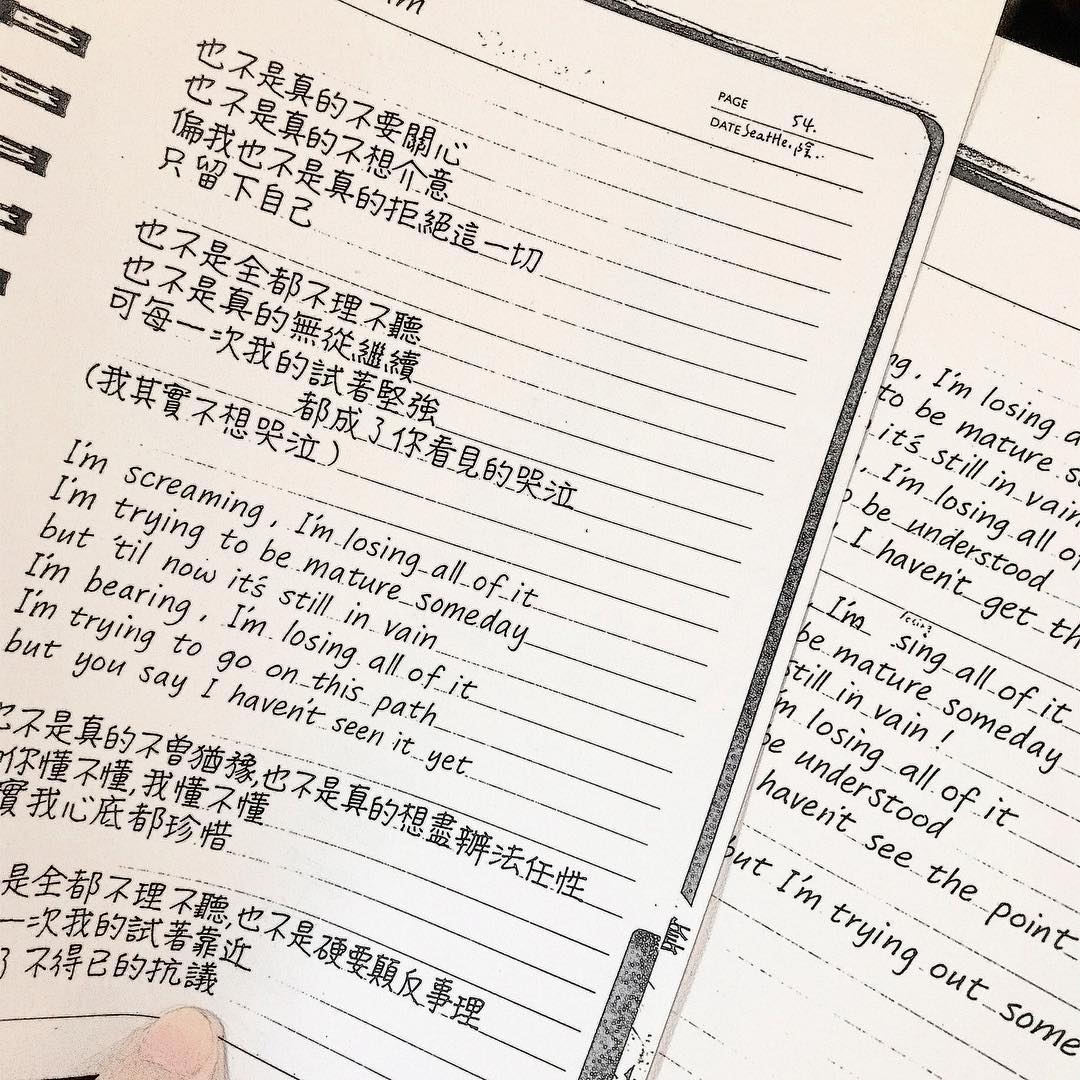 PAGE 54.
DATE Seattle. 陰..
也不是真的不要關心
也不是真的不想介意
偏我也不是真的拒絕這一切
只留下自己
也不是全都不理不聽
也不是真的無從繼續
可每一次我的試著堅強
都成了你看見的哭泣
(我其實不想哭泣)
I'm screaming, I'm losing all of it
I'm trying to be mature someday
but 'til now it's still in vain
I'm bearing, I'm losing all of it
I'm trying to go on this path
but you say I haven't seen it yet
也不是真的不曾猶豫,也不是真的想盡辦法任性
你懂不懂,我懂不懂
實我心底都珍惜
是全都不理不聽,也不是硬要顛反事理
一次我的試著靠近
了不得已的抗議
kid
ng, I'm losing a
to be mature s
it's still in vain
, I'm losing all of
be understood
I haven't get th
I'm losing
sing all of it
be mature someday
still in vain!
'm losing all of it
be understood
haven't see the point
but I'm trying out some